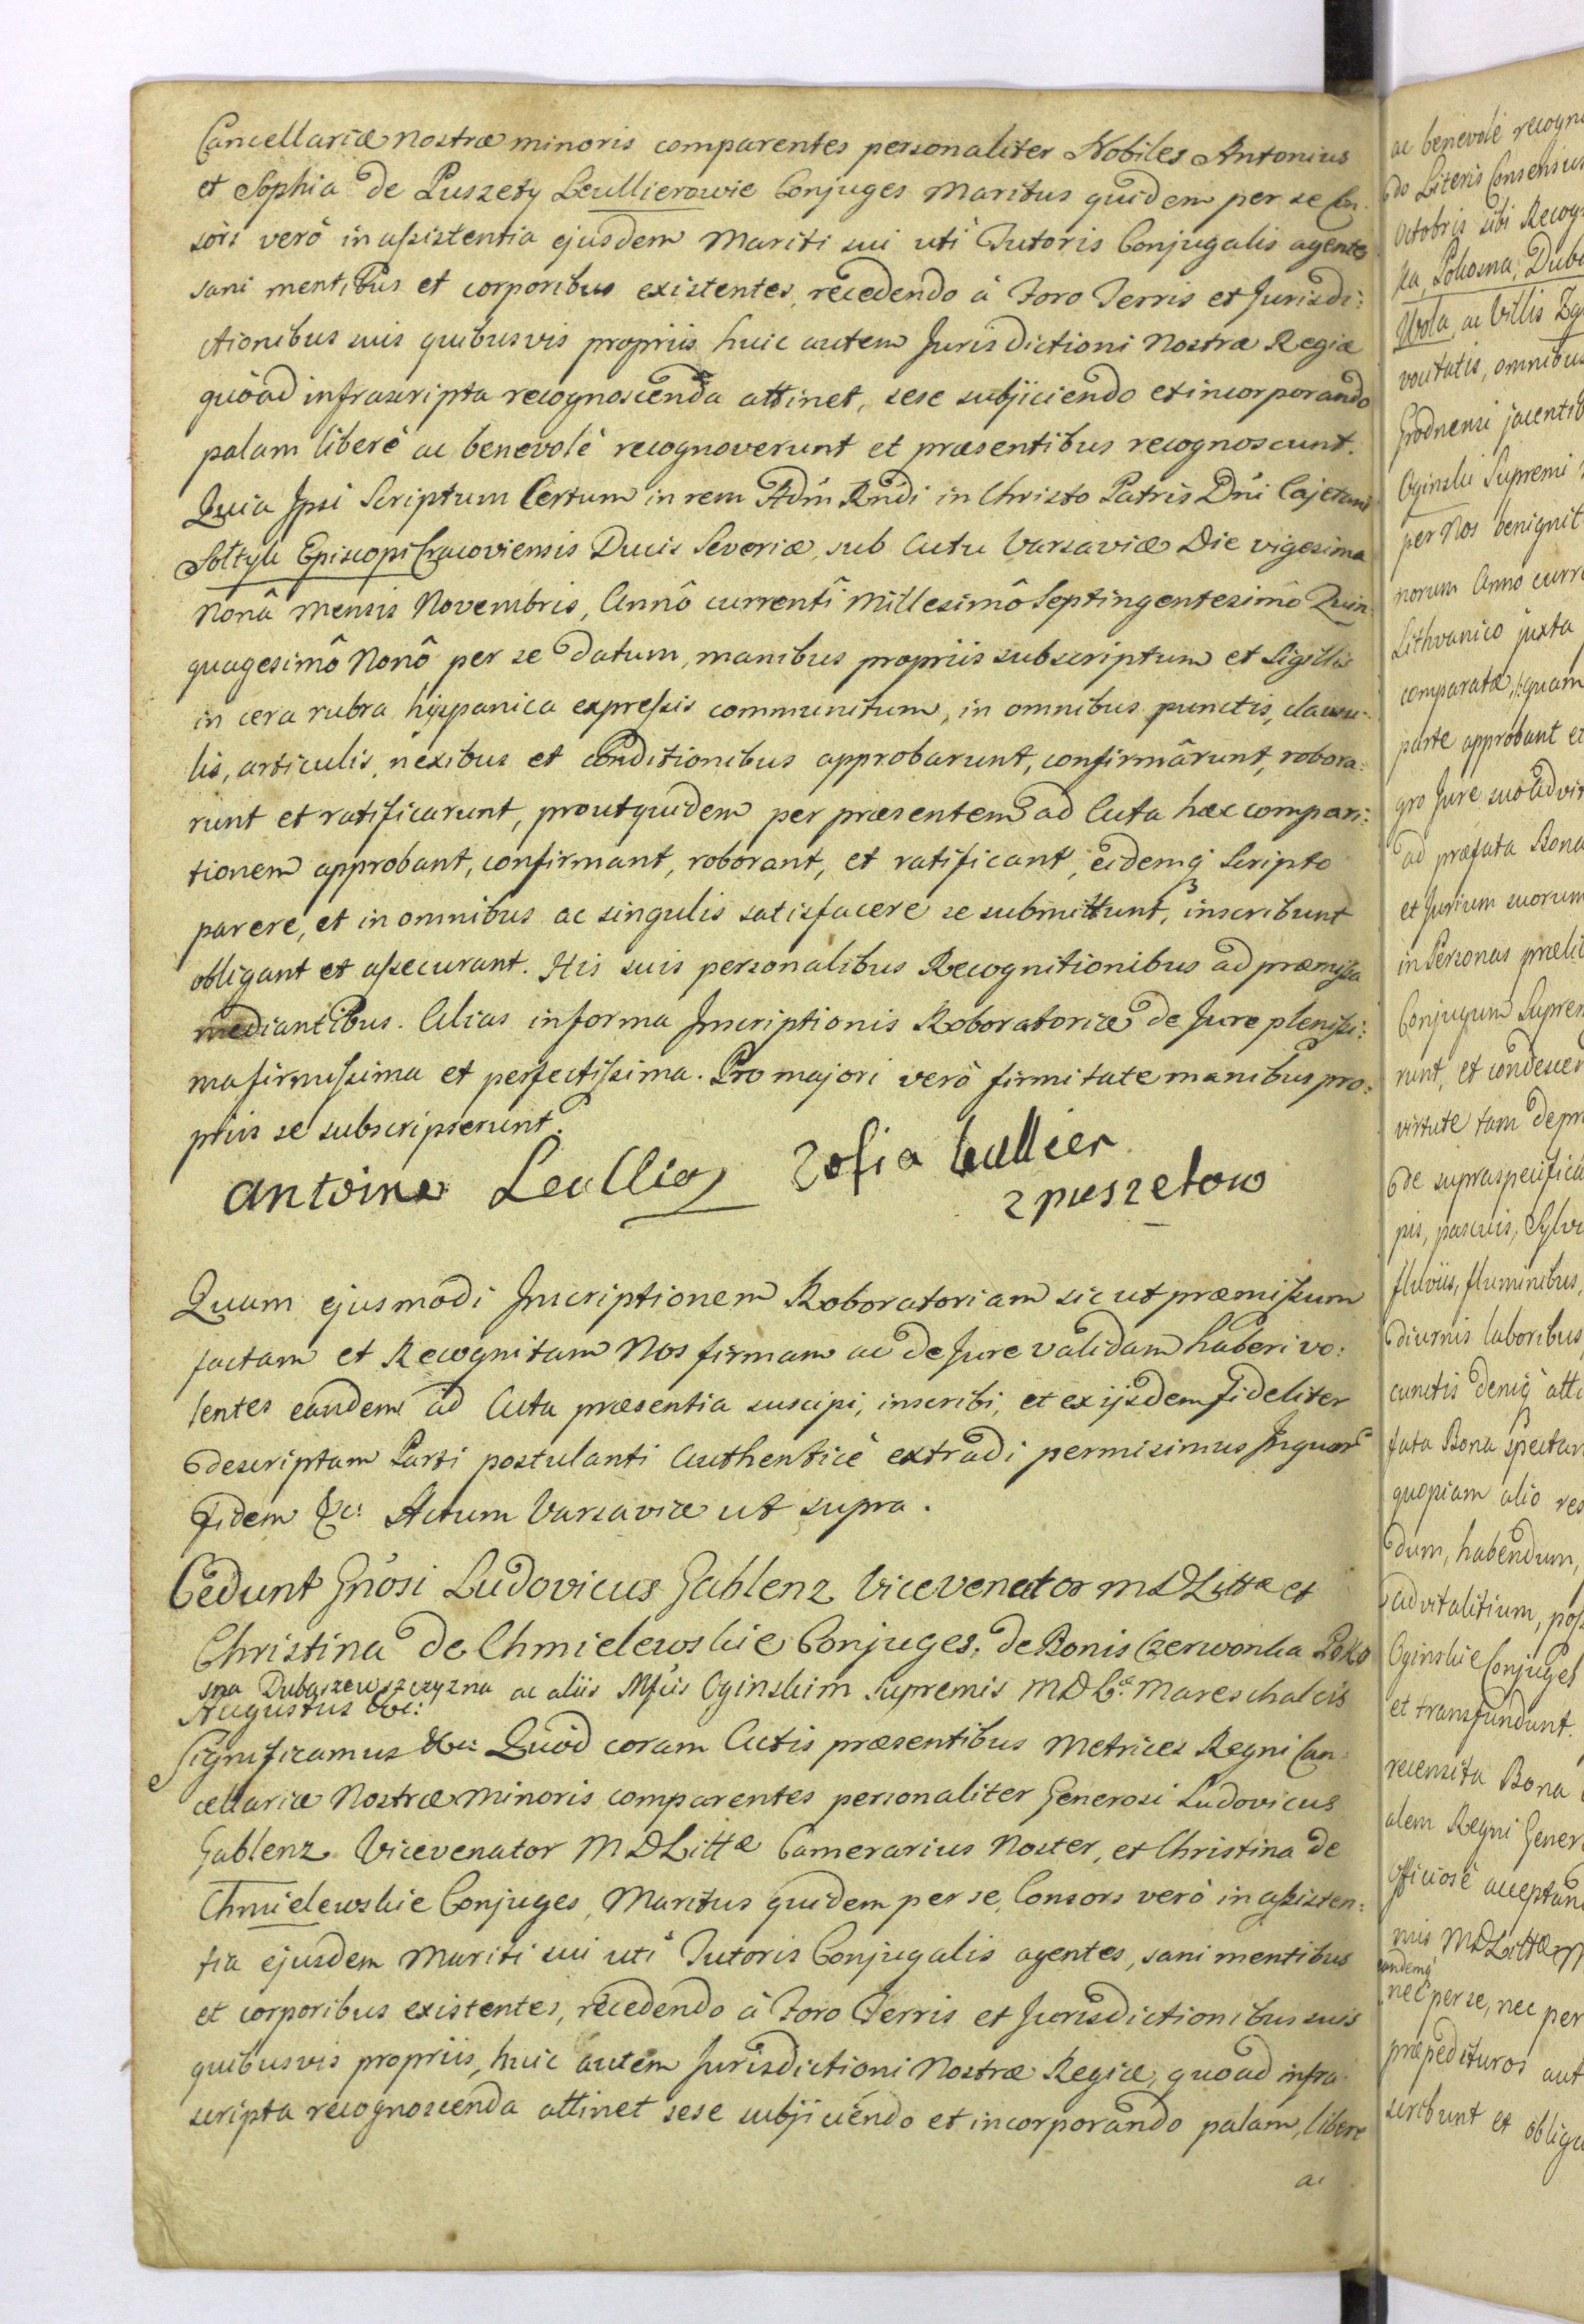 Cancellariæ nostræ minoris comparentes personaliter Nobiles Antonius
et Sophia de Puszety Leullierowie Conjuges Maritus quidem per se Con
sors verò in assistentia ejusdem Mariti sui uti Tutoris Conjugalis agentes
sani mentibus et corporibus existentes, recedendo à Foro Terris et Jurisdi:
ctionibus suis quibusvis propriis huic autem Jurisdictioni Nostræ Regiæ
quòad infrascripta recognoscenda attinet, sese subjiciendo et incorporando
palam liberè ac benevolè recognoverunt et præsentibus recognoscunt.
Quia Ipsi Scriptum Certum in rem Adm̃ Rñdi in Christo Patris Dñi Cajetani
Sołtyk Episcopi Cracoviensis Ducis Severiæ, sub Actu Varsaviæ Die vigesima
Nonâ Mensis Novembris, Annô currentî Millesimô Septingentesimô Quin
quagesimô Nonô per se datum, manibus propriis subscriptum et Sigillis
in cera rubra hispanica expressis communitum, in omnibus punctis, clausu:
lis, articulis, nexibus et conditionibus approbarunt, confirmârunt, robora:
runt et ratificarunt, prout quidem per præsentem ad Acta hæc compari:
tionem approbant, confirmant, roborant, et ratificant, eidemq̃ Scripto
parere, et in omnibus ac singulis satisfacere se submittunt, inscribunt
obligant et assecurant. His suis personalibus Recognitionibus ad præmissa
mediantibus. Alias in forma Inscriptionis Roboratoriæ de Jure plenissi:
ma firmissima et perfectissima. Pro majori verò firmitate manibus pro:
priis se subscripserunt.
Antoine Leullier
Zofia Leullier
z puszetow
Quam ejusmodi Inscriptionem Roboratoriam sic ut præmissum
factam et Recognitam Nos firmam ac de Jure validam haberi vo:
lentes eandem ad Acta præsentia suscipi, inscribi, et ex ijsdem fideliter
descriptam Parti postulanti Authenticè extradi permisimus In quor
fidem &c: Actum Varsaviæ ut supra.
Cedunt Gñosi Ludovicus Gablenz Vicevenator M D Littæ et
Christina de Chmielewskie Conjuges. de Bonis Czerwonka Poko
sna Dubaszewszczyzna ac aliis Mfcis Oginskim Supremis M D L. Mareschalcis
Augustus &c:
Significamus &c: Quòd coram Actis præsentibus Metrices Regni Can:
cellariæ Nostræ Minoris comparentes personaliter Generosi Ludovicus
Gablenz Vicevenator M D Littæ Camerarius Noster, et Christina de
Chmielewskie Conjuges, Maritus quidem per se, Consors verò in assisten:
tia ejusdem Mariti sui uti Tutoris Conjugalis agentes, sani mentibus
et corporibus existentes, recedendo à Foro Terris et Jurisdictionibus suis
quibusvis propriis, huic autem Jurisdictioni Nostræ Regiæ, quoad infra
scripta recognoscenda attinet sese subjiciendo et incorporando palam, libere
ac
ac benevolè recogn
do Literis Consensus
Octobris sibi Recog
ka, Pokosna, Duba
Wola, ac Villis
voitatis, omnibus
Grodnensi jacentib
Oginski Supremi
per Nos benignit
norum Anno curr
Lithvanico juxta
comparata, quam
parte approbant et
gro Jure suo advi
ad præfata Bona
et Jurium suorum
in Personas præli
Conjugum Suprem
runt, et condescen
virtute tam de pr
de supraspecifica
pis, pascuis, Sylvi
fluviis, fluminibus,
diurnis laboribus,
cunctis deniq̃ atti
fata Bona spectan
quopiam alio res
dum, habendum,
advitalitium, poss
Oginskie Conjuges
et transfundunt.
recensita Bona
alem Regni Gener
officiosè acceptan
mis M D Littæ M
eandemq̃
nec per se, nec per
præpedituros aut
scribunt et obliga